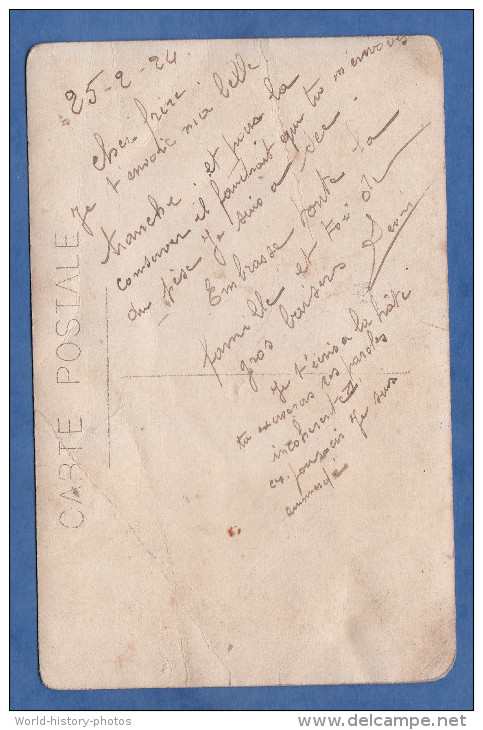 25-2-24
Cher frère.
Je t'envoie ma belle
tranche et pour la
conserver il faudrait que tu m'envoies
du pèse je suis à sec.
Embrasse toute la
famille et toi
gros baisers
je t'écris à la hâte
tu excuseras ces paroles
incohérentes
je suis
emmerdé
CARTE POSTALE
World-history-photos
www.delcampe.net